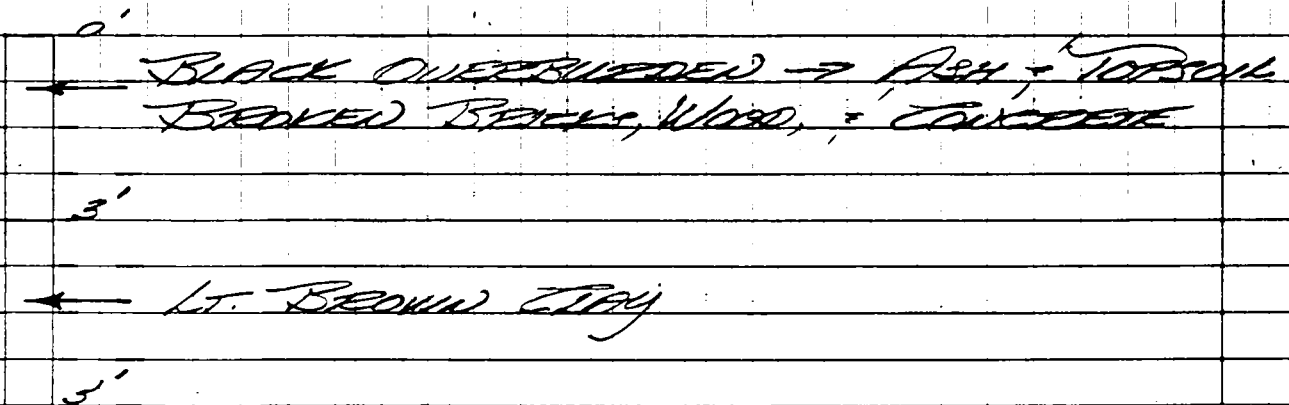 0'
BLACK OVERBURDEN → ASH & TOPSOIL
BROKEN BRICKS, WOOD, & CONCRETE
3'
LT. BROWN CLAY